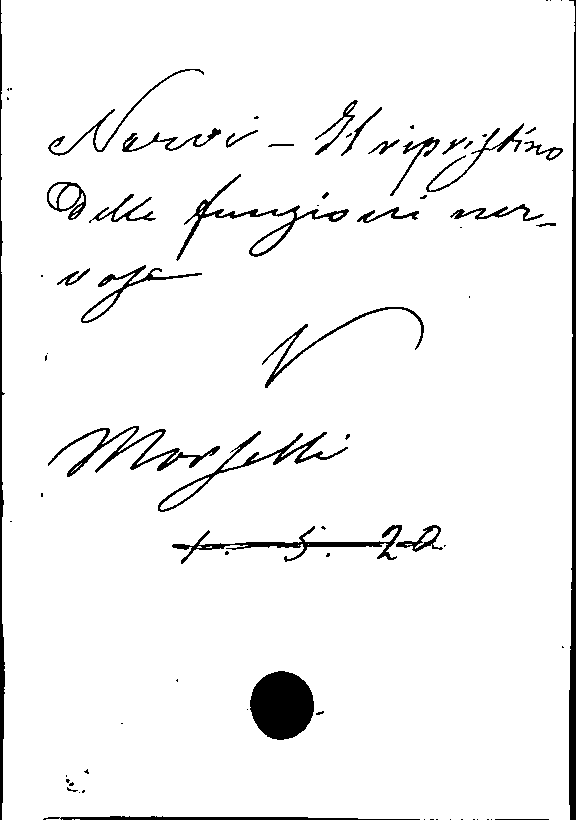 Nervi - Il ripristino
delle funzioni ner-
vose
V
Morselli
1. 5. 20